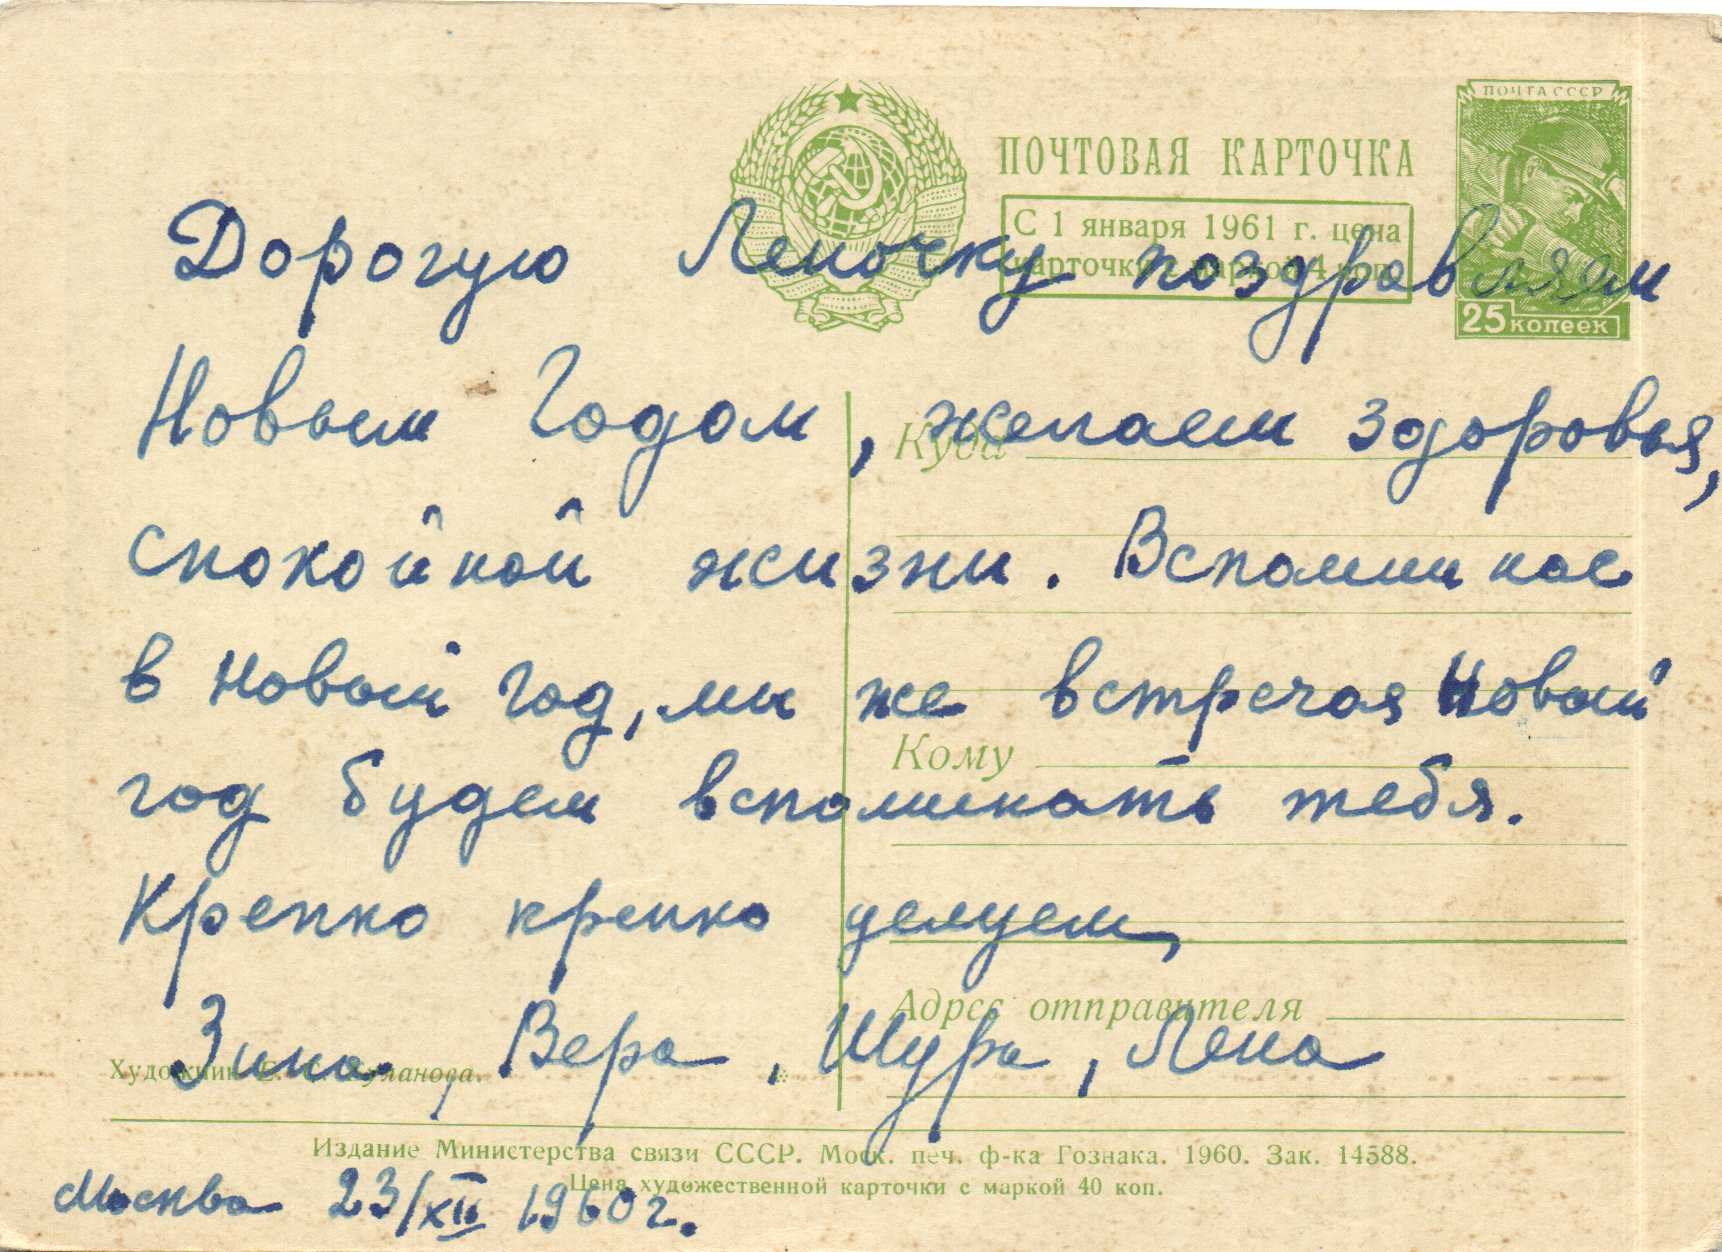 ПОЧТА СССР
ПОЧТОВАЯ КАРТОЧКА
С 1 января 1961 г. цена
карточки с маркой 4 коп.
25 КОПЕЕК
Дорогую Леночку поздравляем
Новым Годом, желаем здоровья,
спокойной жизни. Вспомни нас
в Новый год, мы же встречая Новый
год будем вспоминать тебя.
Крепко крепко целуем,
Зина, Вера, Шура, Лена
Куда
Кому
Адрес отправителя
Художник Гундобин
Издание Министерства связи СССР. Моск. печ. ф-ка Гознака. 1960. Зак. 14588.
Цена художественной карточки с маркой 40 коп.
Москва 23/XII 1960 г.